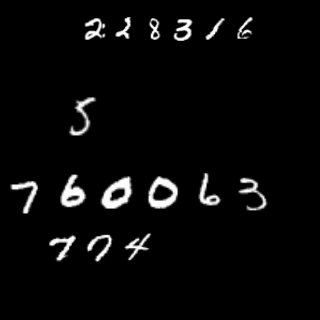 228316
5
760063
774